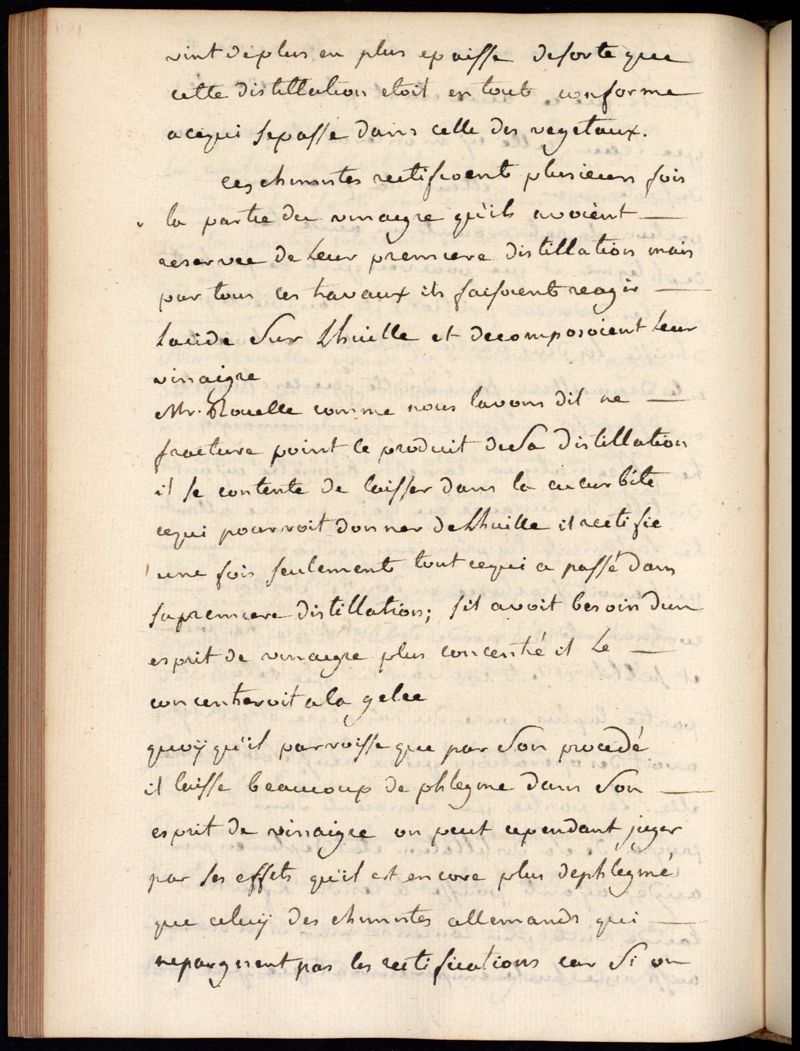 vint deplus en plus epaisse desorte que
cette distillation etoit en tout conforme
acequi sepasse dans celle des vegetaux.
ces chimistes rectifioient plusieurs fois
la partie du vinaigre qu'ils avoient —
reservee de leur premiere distillation mais
par tous ces travaux ils faisoient reagir —
lacide sur lhuille et decomposoient leur
vinaigre
Mr. Rouelle comme nous lavons dit ne —
fracture point le produit desa distillation
il se contente de laisser dans la cucurbite
cequi pourroit donner delhuille il rectifie
une fois seulement tout cequi a passé dans
sapremiere distillation; sil avoit besoin dun
esprit de vinaigre plus concentré il le —
concentreroit ala gelee
quoÿqu'il parroisse que par son procedé
il laisse beaucoup de phlegme dans son —
esprit de vinaigre on peut cependant juger
par ses effets qu'il est encore plus dephlegmé
que celuÿ des chimistes allemands qui —
nepargnent pas les rectifications car si on